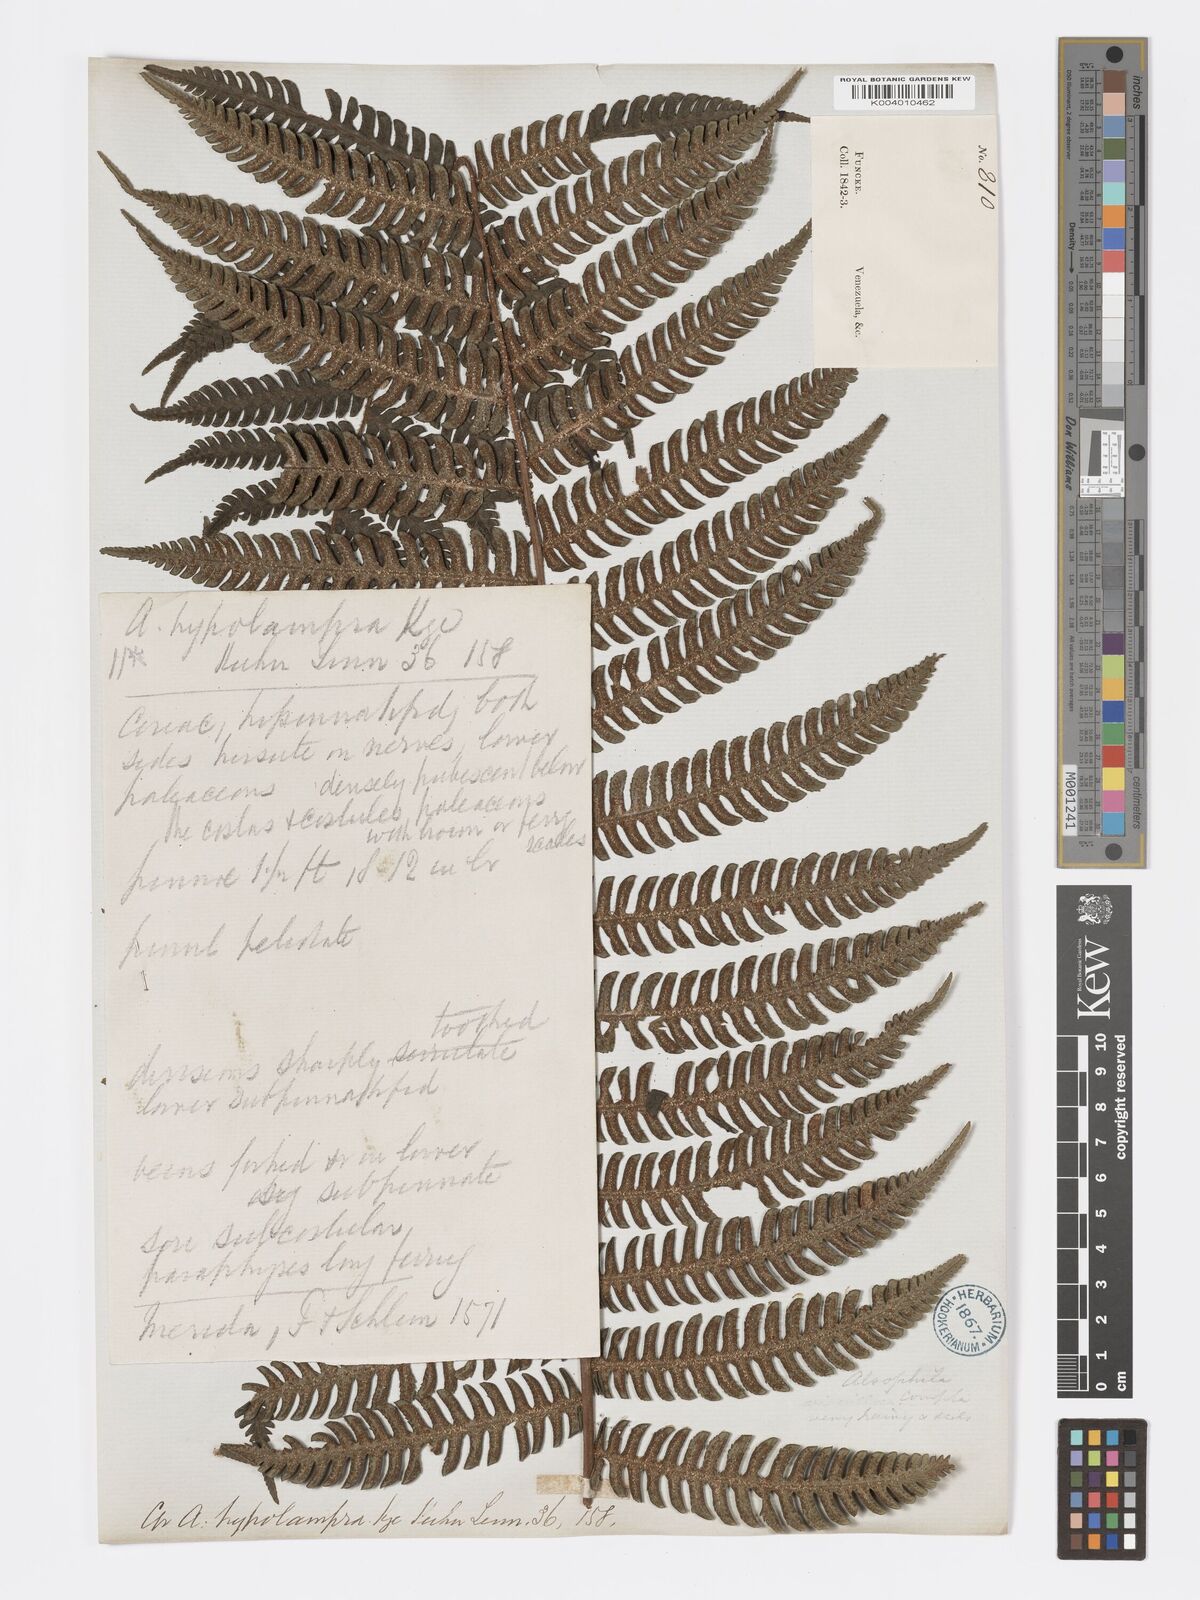 ROYAL BOTANIC GARDENS KEW
K004010462
No. 810
FUNCKE.
Coll. 1842-3.
Venezuela, &c.
A. hypolampra Kze
Kuhn Linn 36 158
Coriac, bipinnatifid, both
sides hirsute on nerves, lower
paleaceous densely pubescent below
the costas & costules paleaceous
with brown or ferrg
scales
pinnae 1 1/2 ft 18 12 in br
pinnl petiolate
toothed
divisions sharply serrulate
lower subpinnatifid
veins forked or in lower
seg subpinnate
sori subcostular
paraphyses long ferrug
Merida, F & Schlim 1571
HERBARIUM HOOKERIANUM
1867.
Alsophila
very hairy &
Cfr A. hypolampra Kze Kuhn Linn. 36, 158.
inches
D50 Illuminant, 2 degree observer
Density
Don Williams
M001241
Kew
Royal Botanic Gardens
copyright reserved
0 1 2 3 4 5 6 7 8 9 10
cm